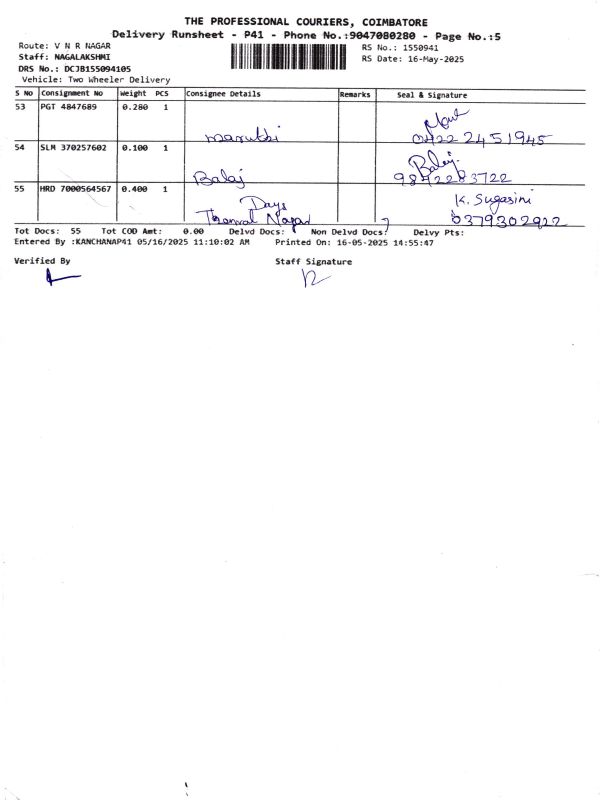 THE PROFESSIONAL COURIERS, COIMBATORE
Delivery Runsheet - P41 - Phone No.:9047080280 - Page No.:5
Route: V N R NAGAR
RS No.: 1550941
Staff: NAGALAKSHMI
RS Date: 16-May-2025
DRS No.: DCJB155094105
Vehicle: Two Wheeler Delivery
S No Consignment No Weight PCS Consignee Details Remarks Seal & Signature
53 PGT 4847689 0.280 1
maruthi 0422 2451945
54 SLM 370257602 0.100 1 Balaj
Balaj 9842283722
55 HRD 7000564567 0.400 1 K. Sugasini
Days
Nagar 6379302922
Tot Docs: 55 Tot COD Amt: 0.00 Delvd Docs: Non Delvd Docs: Delvy Pts:
Entered By :KANCHANAP41 05/16/2025 11:10:02 AM Printed On: 16-05-2025 14:55:47
Verified By Staff Signature